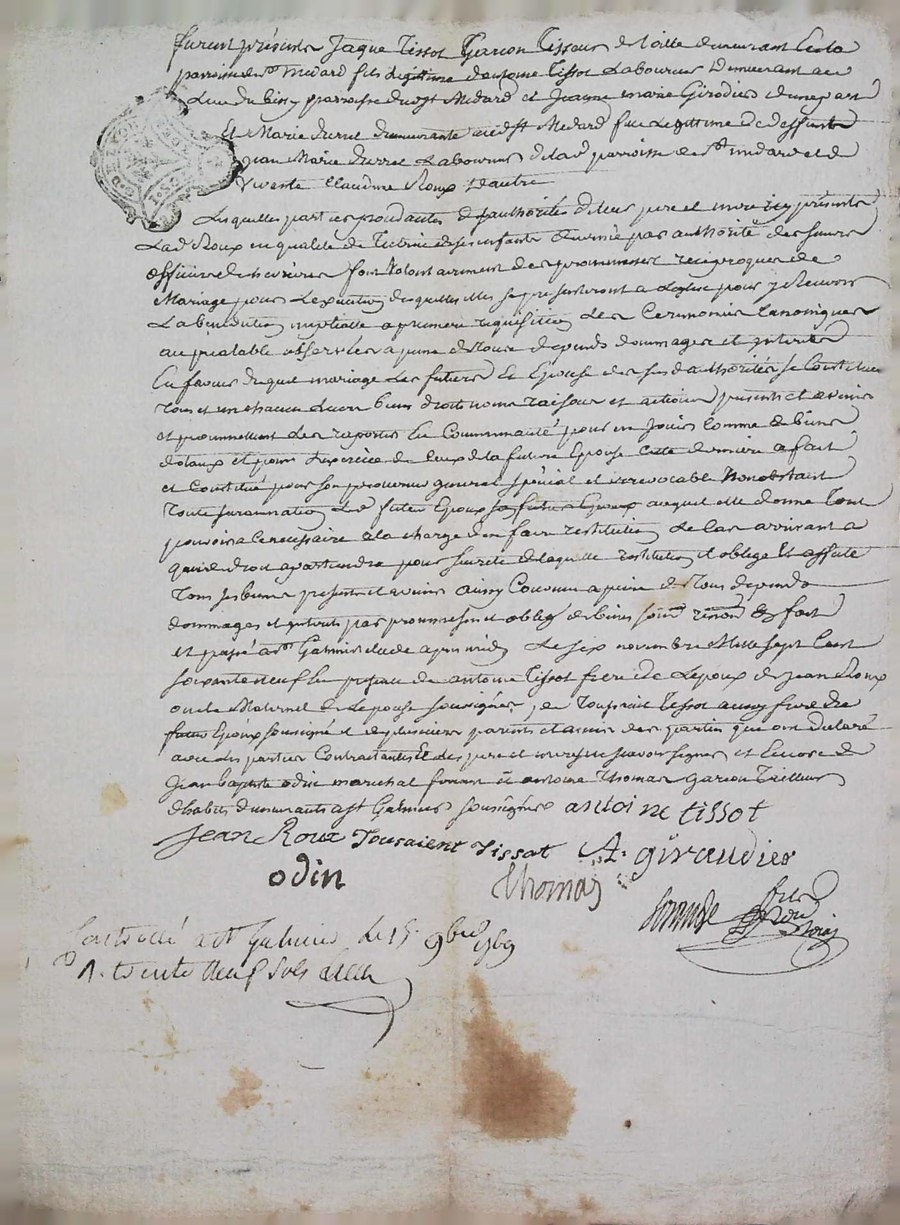 furent présents Jaque Tissot Garcon Tisseur de toille demeurant en la
parroisse de st medard fils légittime d'antoine Tissot Laboureur Demeurant au
Lieu du parroisse dudt st Medard et Jeanne marie Girodier d'une part
Et Marie demeurante audt st Medard fille Legittime de deffunt
jean Marie Laboureur de lad parroisse de st medard et de
vivente Claudine Roux d'autre
Lesquelles parties procedantes de l'authorités de leur pere et mere icy présents
Lad Roux en qualité de Tutrice de ses enfants decernée par authorité des sieurs
officiers de font volontairement des promesses réciproques de
Mariage pour L'execution desquelles elles se presenteront a L'eglise pour y Recevoir
La bénédiction nuptialle a premiere requisition Les Ceremonies Canoniques
au préalable observées a peine de tous depends dommages et interêts
En faveur duquel mariage Les futurs Epouse de ses d authorités se Constituent
tous et un chacun Leurs biens droits noms raisons et actions présents et avenirs
et promettent Les rapporter En Communauté pour en jouir comme de biens
dotaux et pour L'exercice de Ceux de la future Epouse cette derniere a fait
et Constitué pour son procureur general spécial et irrevocable Nonobstant
toute surannation Le d futur Epoux auquel elle donne tout
pouvoir a ce necessaire a la charge d'en faire restitution Le cas arrivant a
qui de droit apartiendra pour sureté de laquelle restitution il oblige Et affecte
Tous ses biens présents et avenirs ainsy Convenu a peine de tous depends
dommages et interets par promesse et oblig de biens soum renon fait
et passé a st Galmier etude apres midy Le six novembre Mille sept Cent
soixante neuf En présence de antoine Tissot frere de L'epoux de jean Roux
oncle Maternel de L'epouse soussignés, de Toussaint Tissot aussy frere du
futur Epoux soussigné et de plusieurs parents et amis des parties qui ont declaré
avec les parties Contractantes Et les pere et mere ne scavoir signer et Encore de
jean baptiste odin marechal ferrant Et antoine Thomas garcon Tailleur
d'habits demeurants a st Galmier soussignés antoine tissot
Jean Roux Tousaient Tissot A. giraudier
odin Thomas
Controllé a st Galmier le 15. 9bre 1769
R. trente neuf sols